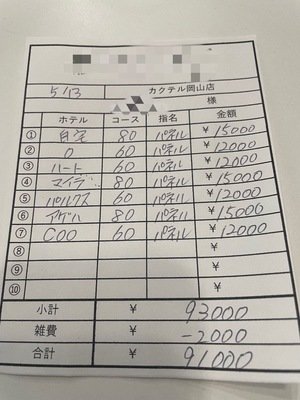 5/13 カクテル岡山店
様
ホテル コース 指名 金額
① 自宅 80 パネル ¥15000
② O 60 パネル ¥12000
③ ハート 60 パネル ¥12000
④ マイラ 80 パネル ¥15000
⑤ パルクス 60 パネル ¥12000
⑥ アゲハ 80 パネル ¥15000
⑦ COO 60 パネル ¥12000
⑧ ¥
⑨ ¥
⑩ ¥
小計 ¥ 93000
雑費 ¥ -2000
合計 ¥ 91000